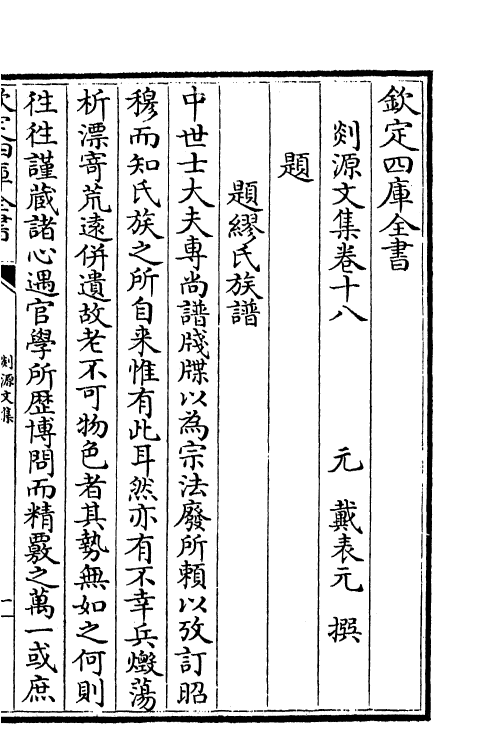 欽定四庫全書
剡源文集卷十八　元　戴表元　撰
題
題繆氏族譜
中世士大夫專尚譜牋牒以為宗法廢所頼以攷訂昭
穆而知氏族之所自来惟有此耳然亦有不幸兵燬蕩
析漂寄荒遠併遺故老不可物色者其勢無如之何則
徃徃謹蔵諸心遇官學所歴博問而精覈之萬一或庶
欽定四庫全書
剡源文集
一